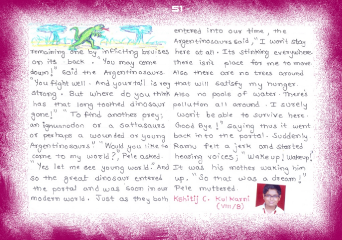 51
remaining one by inflicting bruises
on its back. "You may come
down!" Said the Argentinosaurs.
"You fight well. And your tail is even
strong. But where do you think
has that long toothed dinosaur
gone!" "To find another prey;
an Iguanodon or a
or perhaps a wounded or young
Argentinosaurs" "Would you like to
come to my world?", Pele asked.
"Yes let me see young world. And
so the great dinosaur entered
the portal and was soon in our
modern world. Just as they both
entered into our time, the
Argentinosaurs said, "I won't stay
here at all. Its stinking everywhere
there isn't place for me to move.
Also there are no trees around
that will satisfy my hunger.
Also no pools of water. There's
pollution all around. I surely
won't be able to survive here.
Good Bye!" saying thus it went
back into the portal. Suddenly,
Ramu felt a jerk and started
hearing voices; Wakeup! Wakeup!
It was his mother waking him
up. "So that was a dream!"
Pele muttered.
Kshitij C. Kulkarni
(VIII/B)